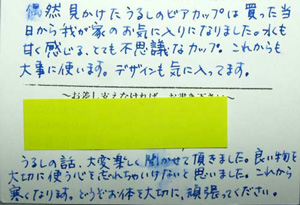 偶然見かけたうるしのビアカップは買った当
日から我が家のお気に入りになりました。水も
甘く感じる、とても不思議なカップ。これからも
大事に使います。デザインも気に入ってます。
〜お差し支えなければ、お書き下さい〜
うるしの話、大変楽しく聞かせて頂きました。良い物を
大切に使う心を忘れちゃいけないと思いました。これから
寒くなります。どうぞお体を大切に、頑張ってください。